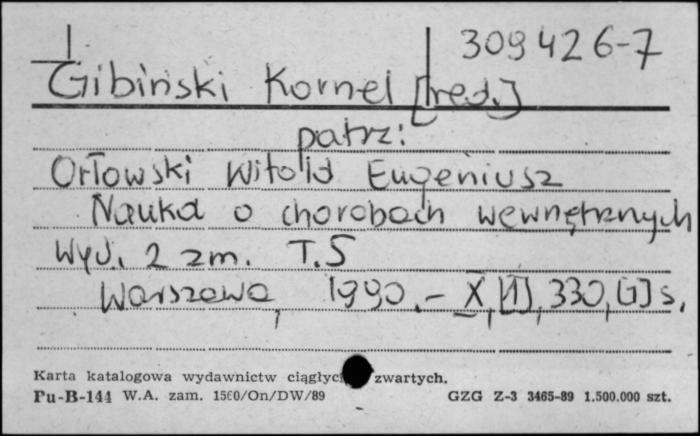 309426-7
Gibiński Kornel [red.]
patrz:
Orłowski Witold Eugeniusz
Nauka o chorobach wewnętrznych
Wyd. 2 zm. T.5
Warszawa, 1990.- X, [1], 330, [1] s.
Karta katalogowa wydawnictw ciągłych zwartych.
Pu-B-144 W.A. zam. 1560/On/DW/89 GZG Z-3 3465-89 1.500.000 szt.